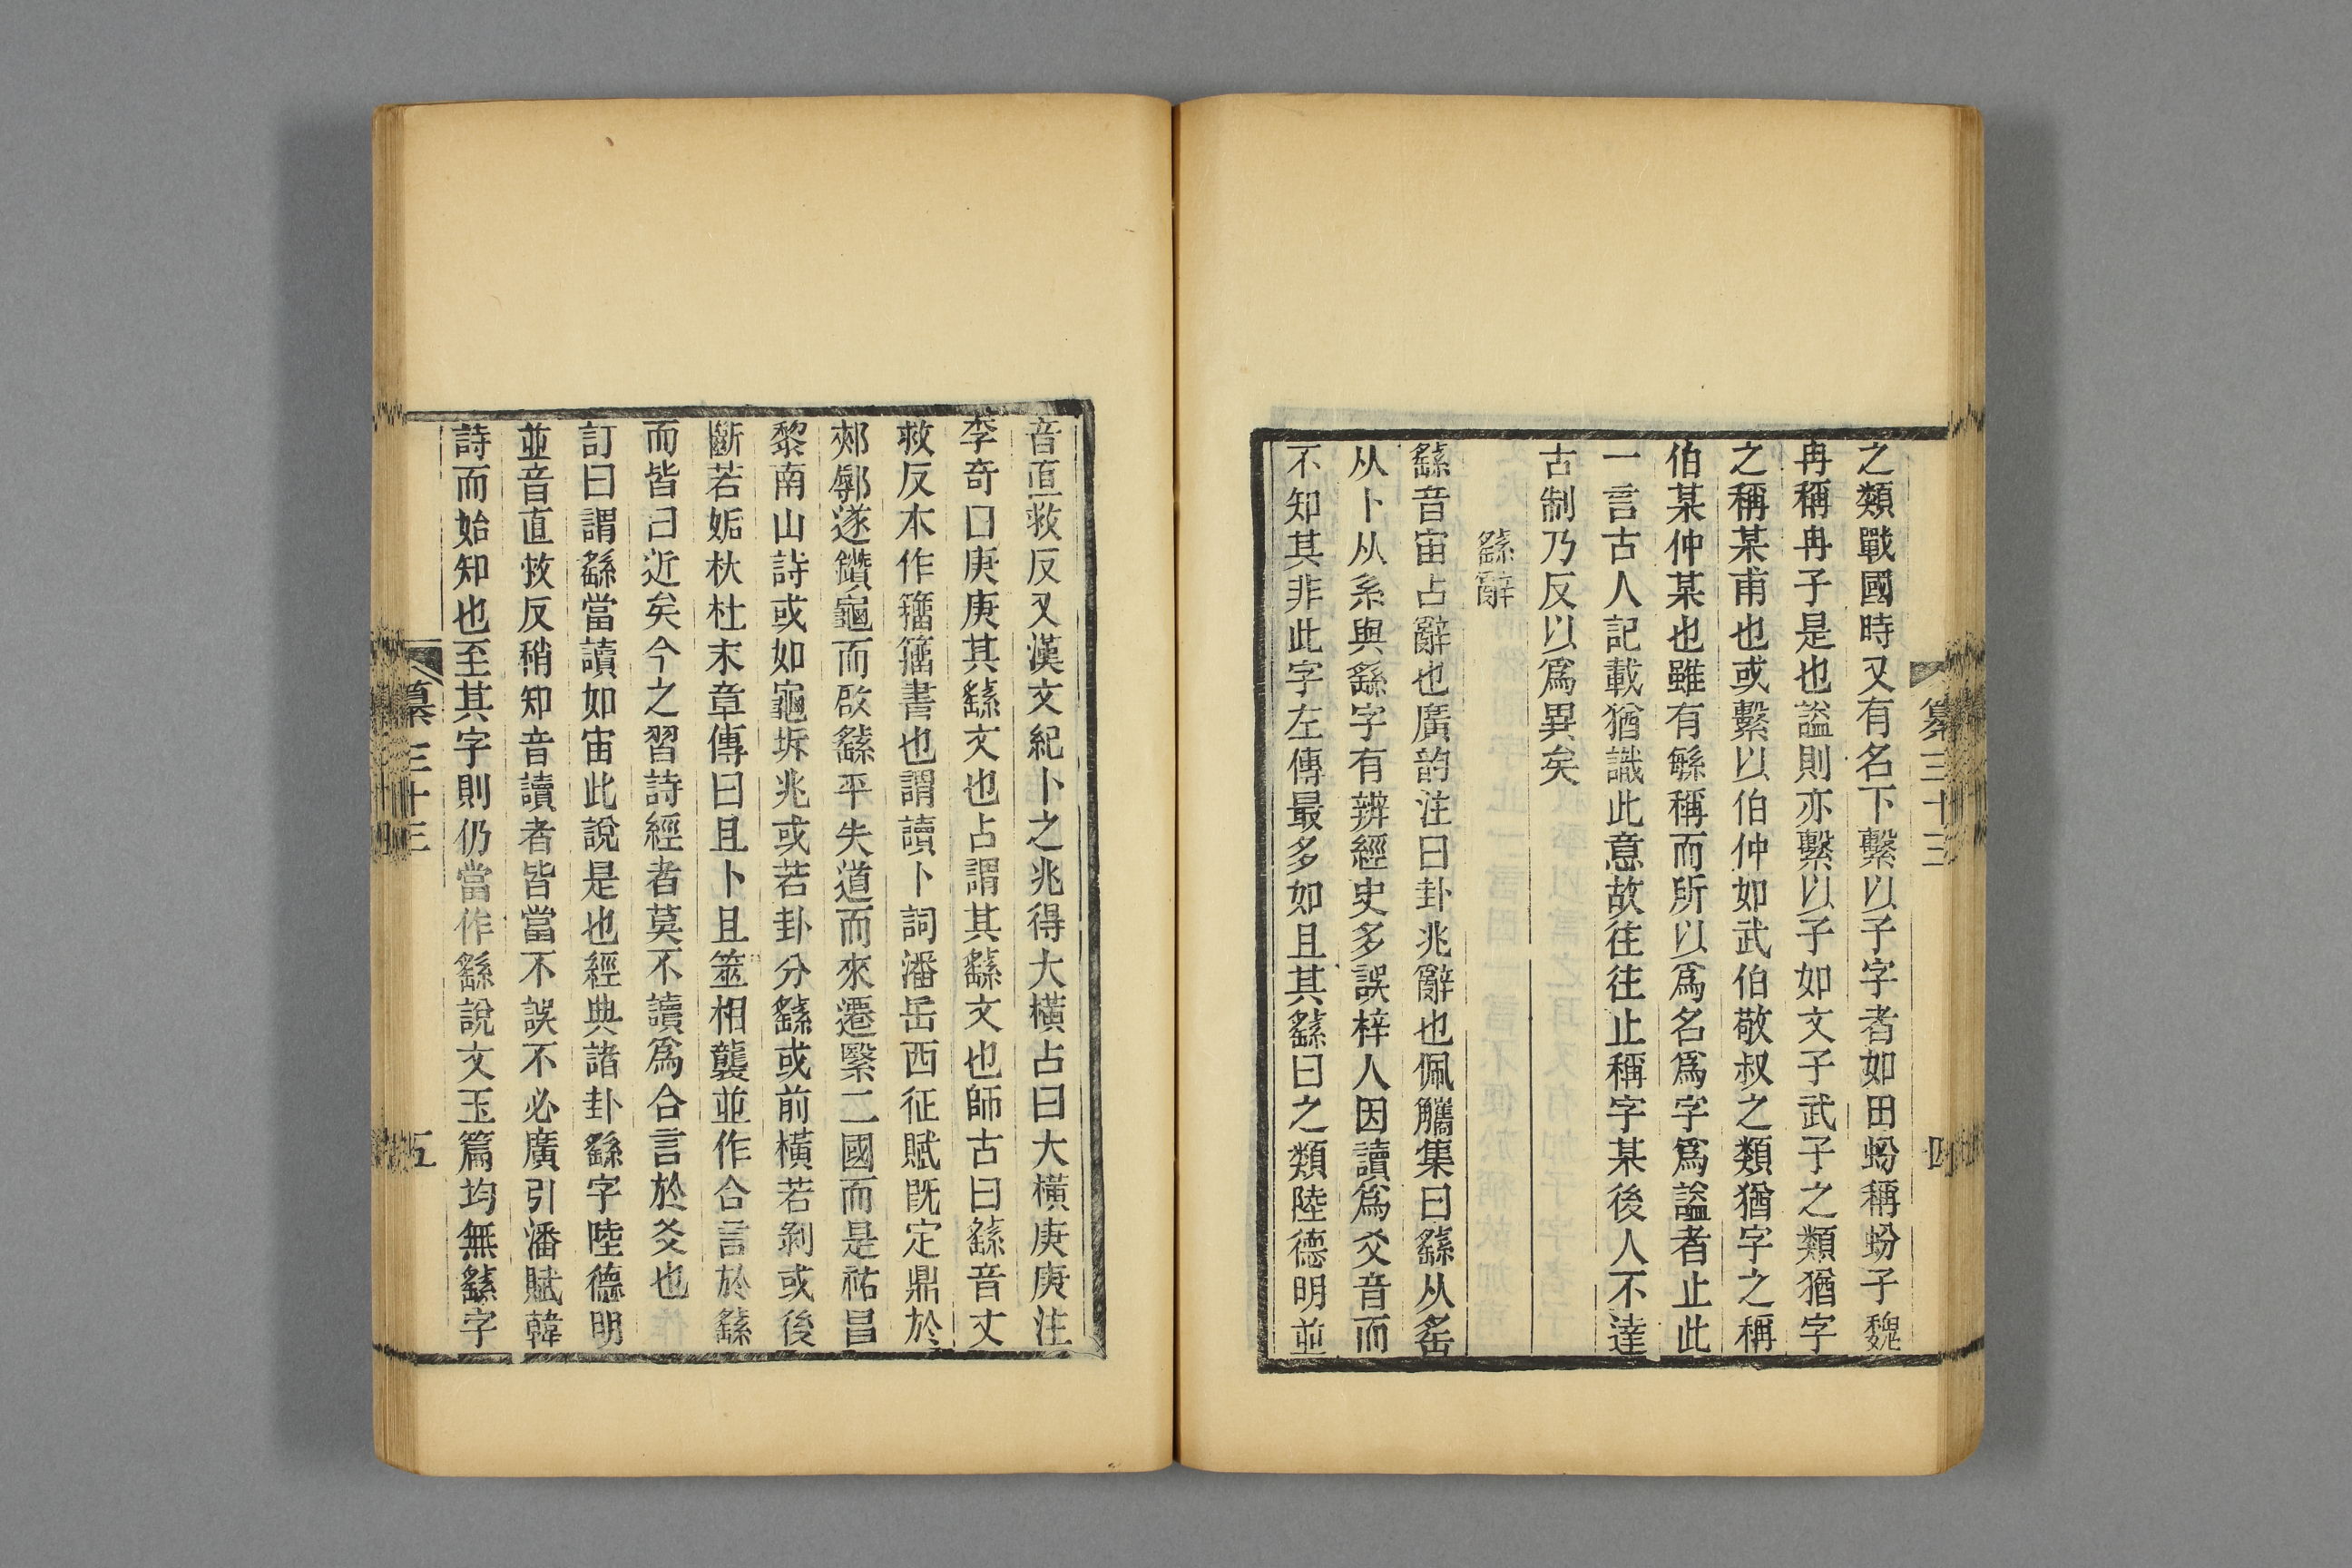 之類戰國時又有名下繫以子字者如田蚡稱蚡子魏
冉稱冉子是也謚則亦繫以子如文子武子之類猶字
之稱某甫也或繫以伯仲如武伯敬叔之類猶字之稱
伯某仲某也雖有緐稱而所以爲名爲字爲謚者止此
一言古人記載猶識此意故往往止稱字某後人不達
古制乃反以爲異矣
繇辭
繇音宙占辭也廣韵注曰卦兆辭也佩觿集曰繇从䍃
从卜从系與繇字有辨經史多誤梓人因讀爲爻音而
不知其非此字左傳最多如且其繇曰之類陸德明並
纂三十三
四
音直救反又漢文紀卜之兆得大橫占曰大橫庚庚注
李奇曰庚庚其繇文也占謂其繇文也師古曰繇音丈
救反本作籀籀書也謂讀卜詞潘岳西征賦旣定鼎於
郟鄏遂鑽龜而啟繇平失道而來遷繄二國而是祐昌
黎南山詩或如龜坼兆或若卦分繇或前橫若剝或後
斷若姤杕杜末章傳曰且卜且筮相襲並作合言於繇
而皆曰近矣今之習詩經者莫不讀爲合言於爻也
訂曰謂繇當讀如宙此說是也經典諸卦繇字陸德明
並音直救反稍知音讀者皆當不誤不必廣引潘賦韓
詩而始知也至其字則仍當作繇說文玉篇均無繇字
纂三十三
五